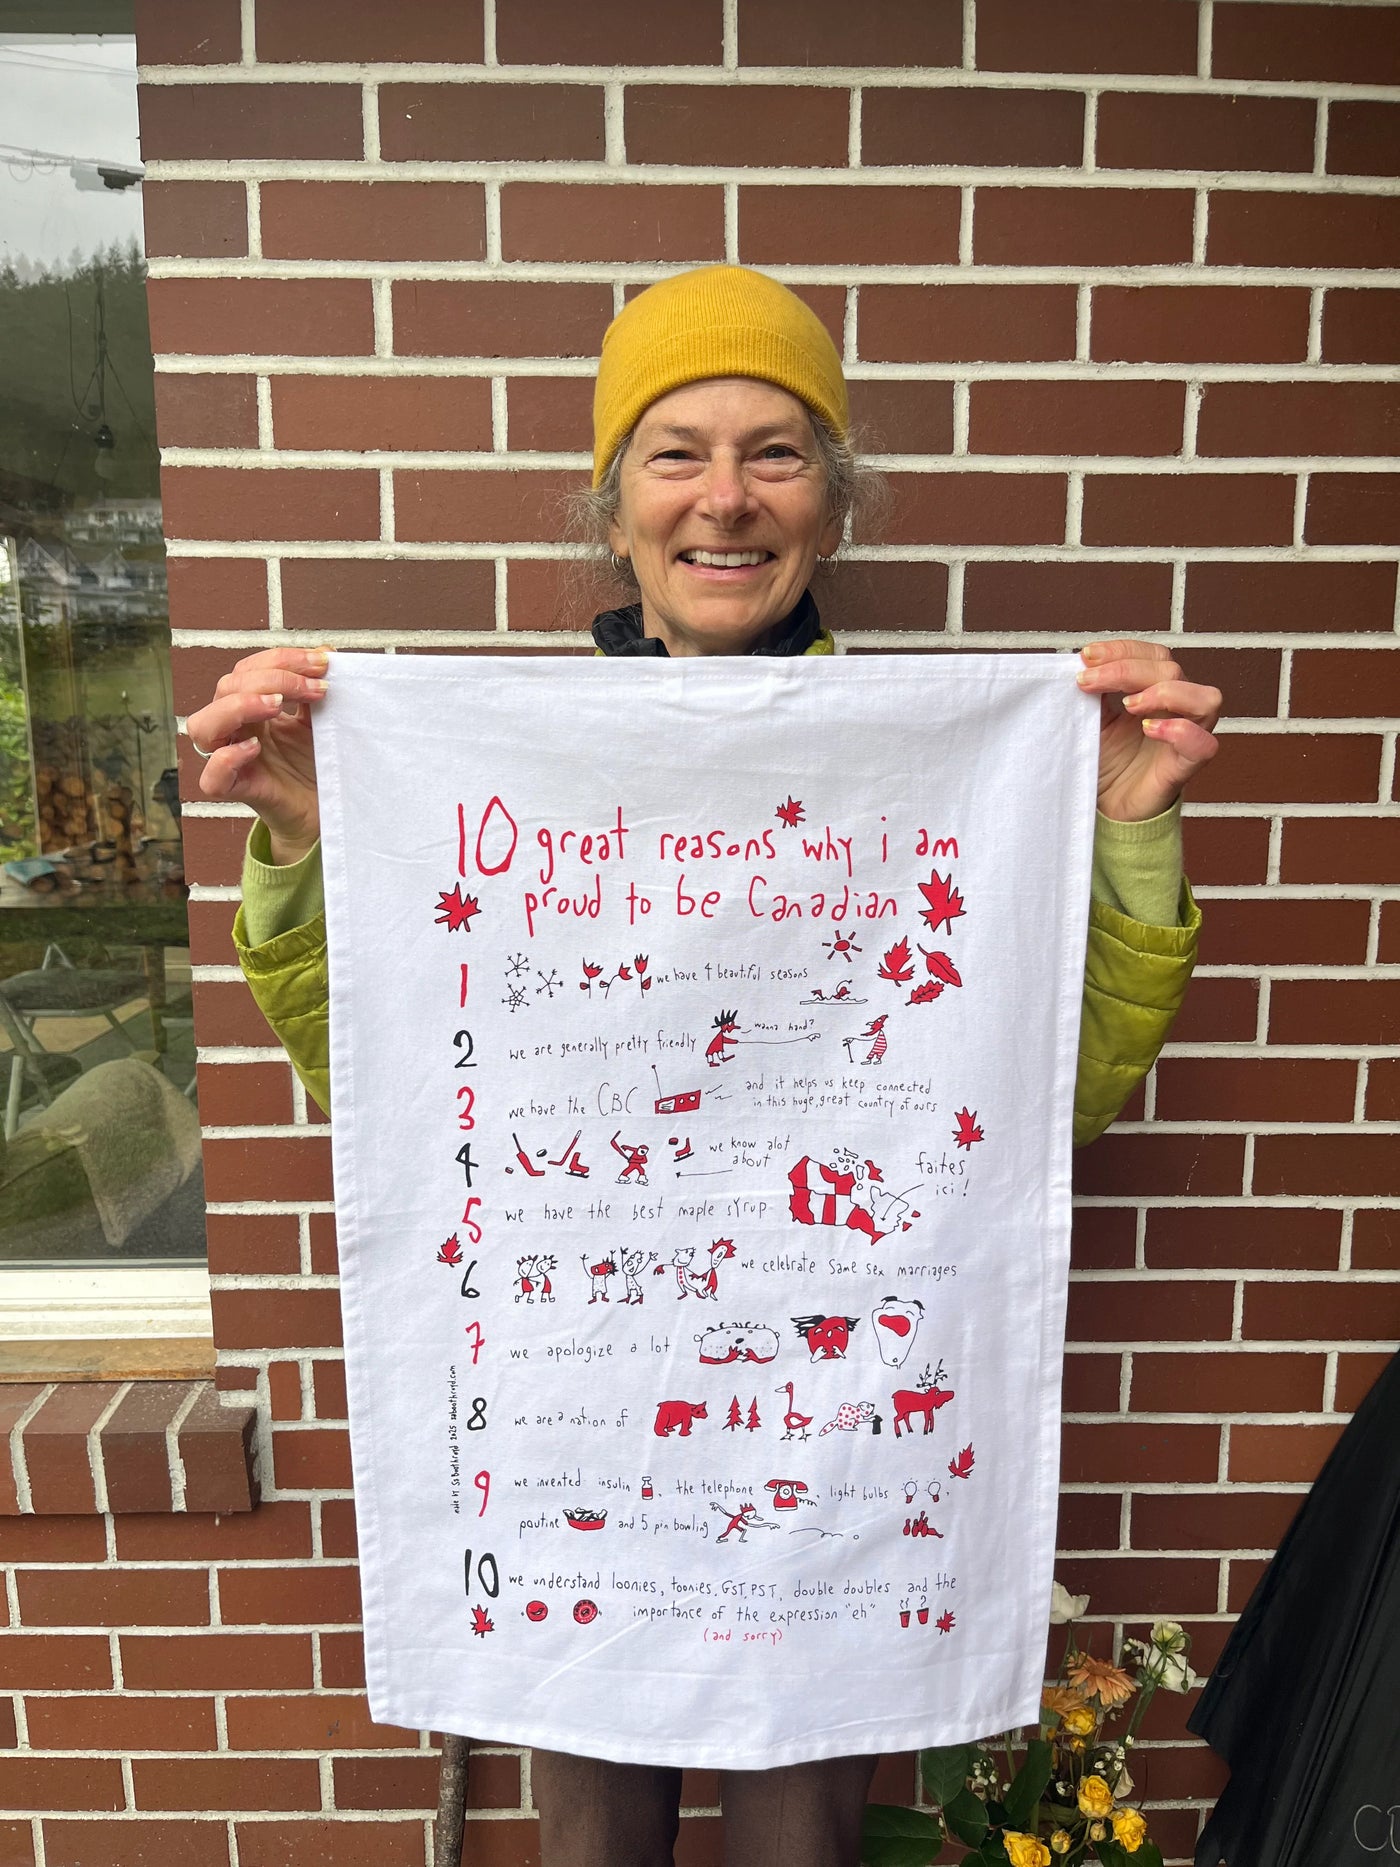 10 great reasons why i am
proud to be Canadian
1 we have 4 beautiful seasons
2 we are generally pretty friendly
wanna hand?
3 we have the CBC
and it helps us keep connected
in this huge, great country of ours
4 we know alot
about
5 we have the best maple syrup
faites
ici!
6 we celebrate same sex marriages
7 we apologize a lot
8 we are a nation of
9 we invented insulin, the telephone, light bulbs,
poutine and 5 pin bowling
10 we understand loonies, toonies, GST, PST, double doubles and the
importance of the expression "eh"
(and sorry)
made by Sa Boothroyd 2025 saboothroyd.com